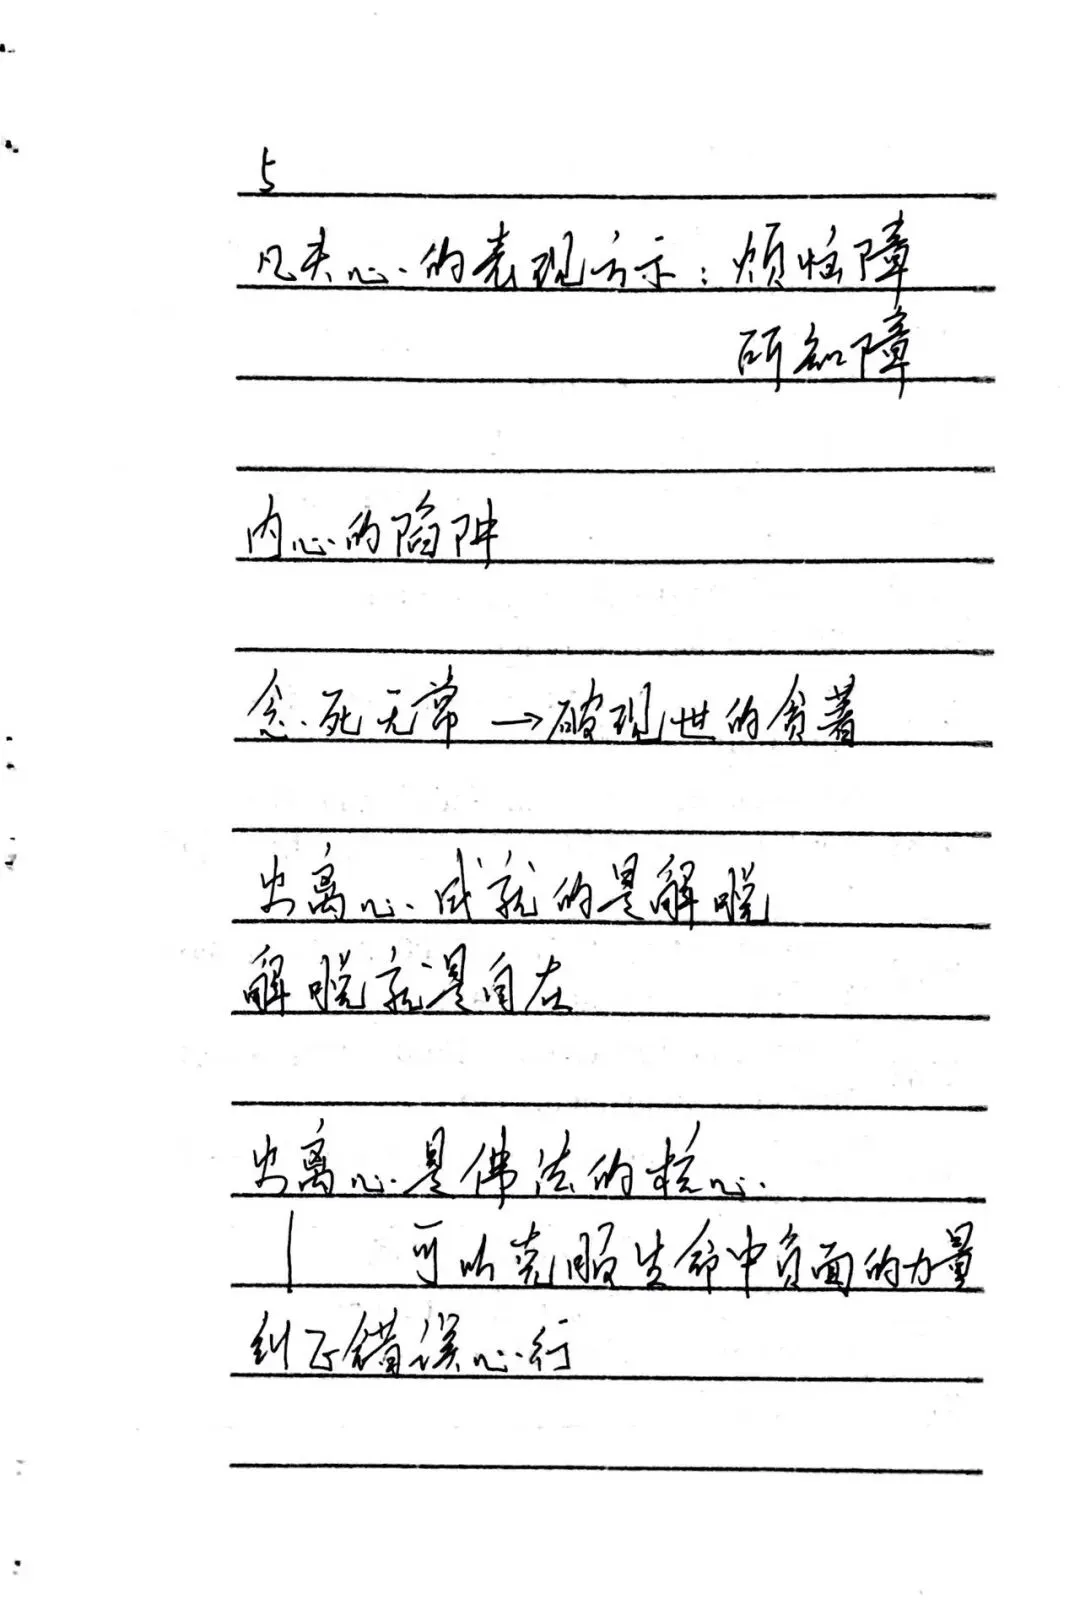 5
凡夫心的表现方示：烦恼障
所知障
内心的陷阱
念死无常→破现世的贪著
出离心成就的是解脱
解脱就是自在
出离心是佛法的核心
可以克服生命中负面的力量
纠正错误心行